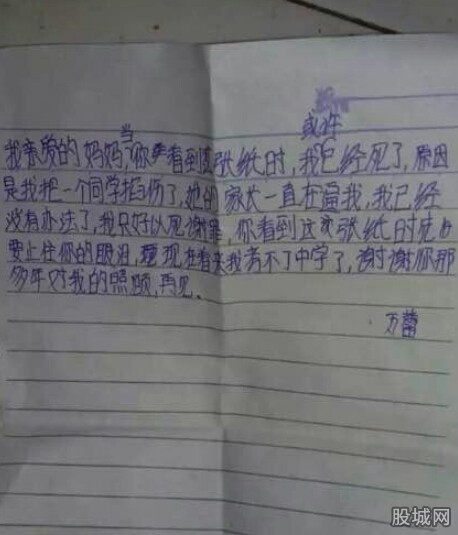 当 或许
我亲爱的妈妈,你看到这张纸时,我已经死了,原因
是我把一个同学指伤了,她的家长一直在逼我,我已经
没有办法了,我只好以死谢罪,你看到这张纸时先
要止住你的眼泪,现在看来我考不了中学了,谢谢你那
多年对我的照顾,再见。
万蕾
股城网